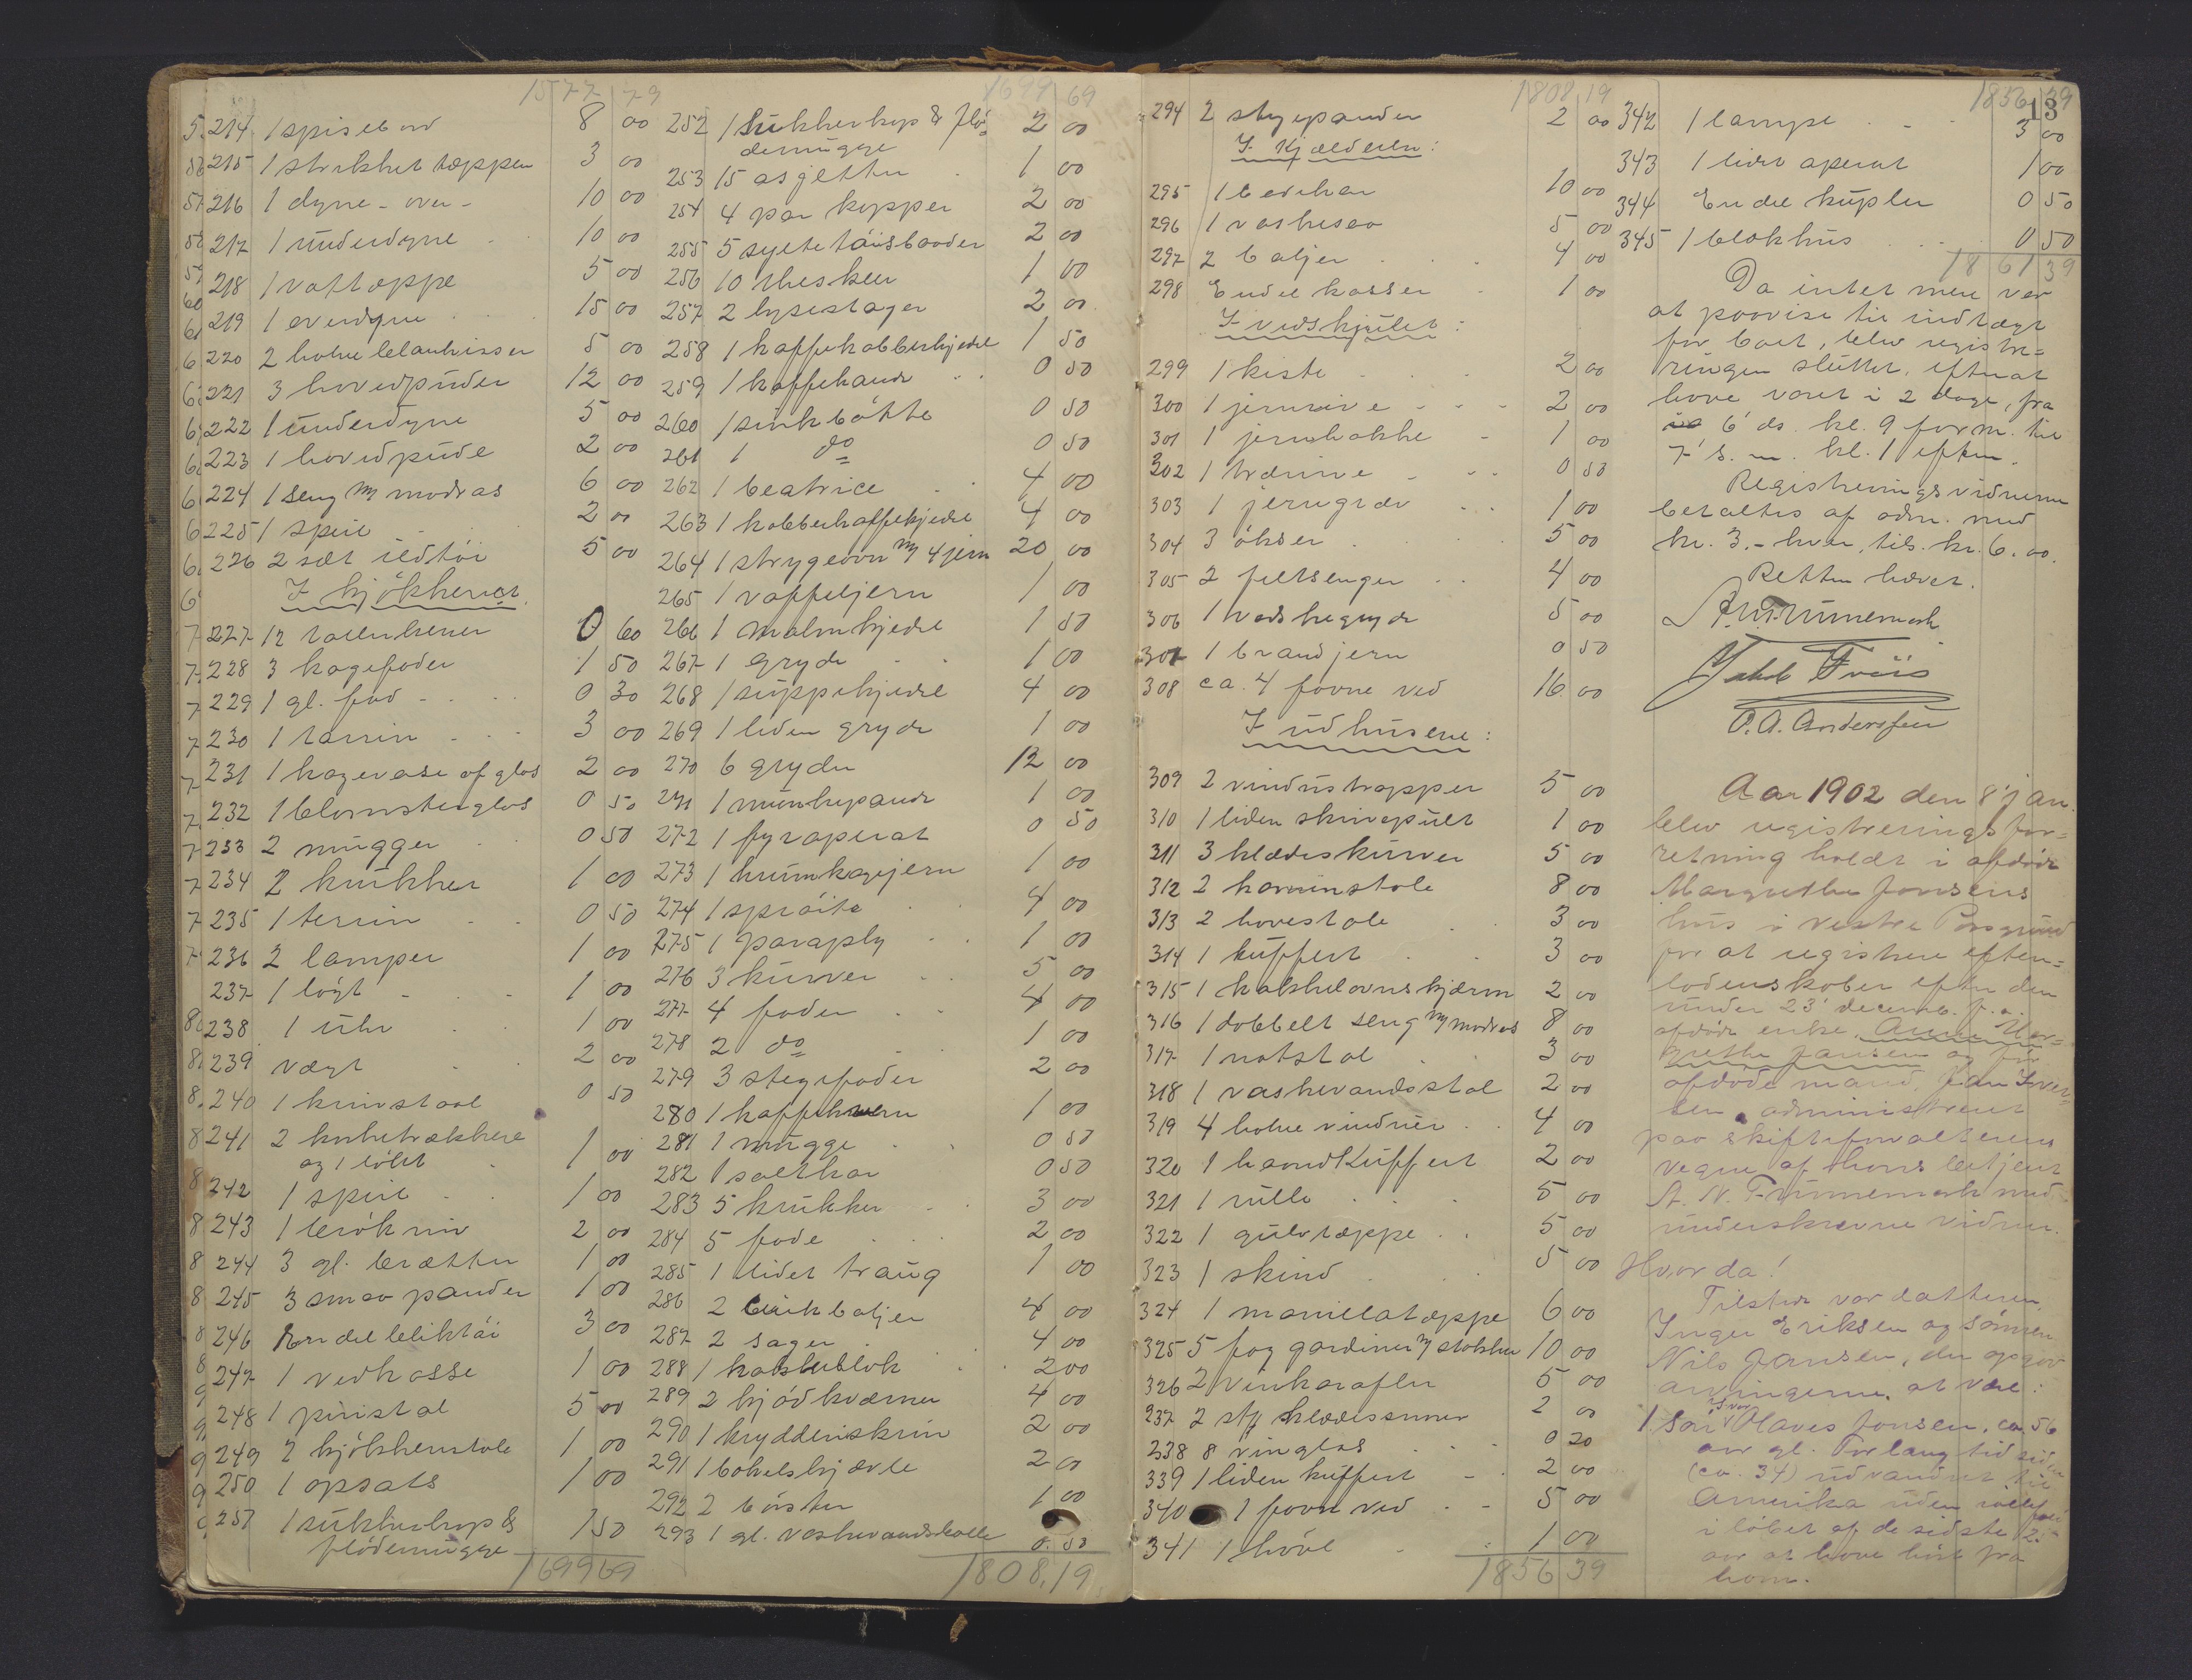 1577 79
214 1 spisebord 8 00
215 1 strikket tæppe 3 00
216 1 dyne - over - 10 00
217 1 underdyne 10 00
218 1 vattæppe 5 00
219 1 overdyne 15 00
220 2 halve 5 00
221 3 hovedpuder 12 00
222 1 underdyne 5 00
223 1 hovedpude 2 00
224 1 seng m/ madras 6 00
225 1 speil 2 00
226 2 sæt ildtøi 5 00
I kjøkkenet.
227 12 tallerkener 0 60
228 3 kagefader 1 50
229 1 gl. fad 0 30
230 1 tarrin 3 00
231 1 kagevase af glas 2 00
232 1 blomsterglas 0 50
233 2 mugger 0 50
234 2 krukker 1 00
235 1 terrin 0 50
236 2 lamper 1 00
237 1 løgt 1 00
238 1 uhr 1 00
239 vægt 2 00
240 1 0 50
241 2
og 1 1 00
242 1 speil 1 00
243 1 2 00
244 3 gl. brætter 1 00
245 3 smaa pander 1 00
246 En del bliktøi 3 00
247 1 vedkasse 1 00
248 1 pinistol 5 00
249 2 kjøkkenstole 1 00
250 1 opsats 1 00
251 1 sukkerkop &
flødemugge 1 50
1699 69
1699 69
252 1 sukkerkop & flø-
demugge 2 00
253 15 asjetter 1 00
254 4 par kopper 2 00
255 5 syltetøisboder 2 00
256 10 theskeer 1 00
257 2 lysestager 2 00
258 1 kaffekobberkjedel 1 50
259 1 kaffekande 0 50
260 1 sinkbøtte 0 50
261 1 do 0 50
262 1 beatrice 4 00
263 1 kobberkaffekjedel 4 00
264 1 strygeovn m/ 4 jern 20 00
265 1 vaffeljern 1 00
266 1 malmkjedel 1 50
267 1 gryde 1 00
268 1 suppekjedel 4 00
269 1 liden gryde 1 00
270 6 gryder 12 00
271 1 munkepande 1 00
272 1 fyraperat 0 50
273 1 krumkagejern 1 00
274 1 sprøite 4 00
275 1 paraply 1 00
276 3 kurver 5 00
277 4 fader 4 00
278 2 do 1 00
279 3 stegefader 2 00
280 1 kaffekvern 1 00
281 1 mugge 0 50
282 1 saltkar 0 50
283 5 krukker 3 00
284 5 fade 2 00
285 1 lidet traug 1 00
286 2 blikbaljer 4 00
287 2 sager 4 00
288 1 hakkeblok 2 00
289 2 kjødkværner 4 00
290 1 krydderiskrin 2 00
291 1 bakelskjævle 2 00
292 2 børster 1 00
293 1 gl. vaskevandsballe 0 50
1808,19
1808 19
294 2 stegepander 2 00
I kjælderen:
295 1 10 00
296 1 vaskesaa 5 00
297 2 baljer 4 00
298 Endel kasser 1 00
I vedskjulet:
299 1 kiste 2 00
300 1 jernrive 2 00
301 1 jernhakke 1 00
302 1 trærive 0 50
303 1 jerngrev 1 00
304 3 økser 5 00
305 2 feltsenger 4 00
306 1 vaskegryde 5 00
307 1 brandjern 0 50
308 ca. 4 favne ved 16 00
I udhusene:
309 2 vindustrapper 5 00
310 1 liden skrivepult 1 00
311 3 klædeskurver 5 00
312 2 kaminstole 8 00
313 2 havestole 3 00
314 1 kuffert 3 00
315 1 kakkelovnskjærm 2 00
316 1 dobbelt seng m/ madras 8 00
317 1 natstol 3 00
318 1 vaskevandsstol 2 00
319 4 halve vinduer 4 00
320 1 haandkuffert 2 00
321 1 rulle 5 00
322 1 gulvtæppe 5 00
323 1 skind 5 00
324 1 manillatæppe 6 00
325 5 fag gardiner m/ stokker 10 00
326 2 vinkarafler 5 00
237 2 stk klædessnorer 2 00
238 8 vinglas 0 20
339 1 liden kuffert 2 00
340 1 favn ved 5 00
341 1 høvl 1 00
1856 39
1856 39
13
342 1 lampe 3 00
343 1 lidet aperat 1 00
344 En del kupler 0 50
345 1 blakhus 0 50
1861 39
Da intet mere var
at paavise til indtægt
for boet, blev registre=
ringen sluttet, efterat
have varet i 2 dage, fra
6' ds. kl. 9 form. til
7' s. m. kl. 1 efterm.
Registreringsvidnerne
betaltes af adm. med
kr. 3,- hver, tils. kr. 6.00.
Retten hævet.
A. N. Trummemark
Jakob Friis
O. A. Andersen
Aar 1902 den 8' jan.
blev registreringsfor=
retning holdt i afdøde
Margrethe Jansens
hus i vestre Porsgrund
for at registrere efter=
ladenskaber efter den
under 23' decemb. f. a.
afdøde enke Anne Mar=
grethe Jansen og før
afdøde mand, Jan Iver=
sen administreret
paa skifteforvalterens
vegne af hans betjent
A. N. Trummemark med
underskrevne vidner.
Hvorda!
Tilstede var datteren
Inger Eriksen og sønnen
Nils Jansen, der opgav
arvingerne at være:
1. søn Iver Olaves Jansen, ca. 56
aar gl. For lang tid siden
(ca. 34) udvandret til
Amerika uden ialfald
i løbet af de sidste 12
aar at have hørt fra
ham.